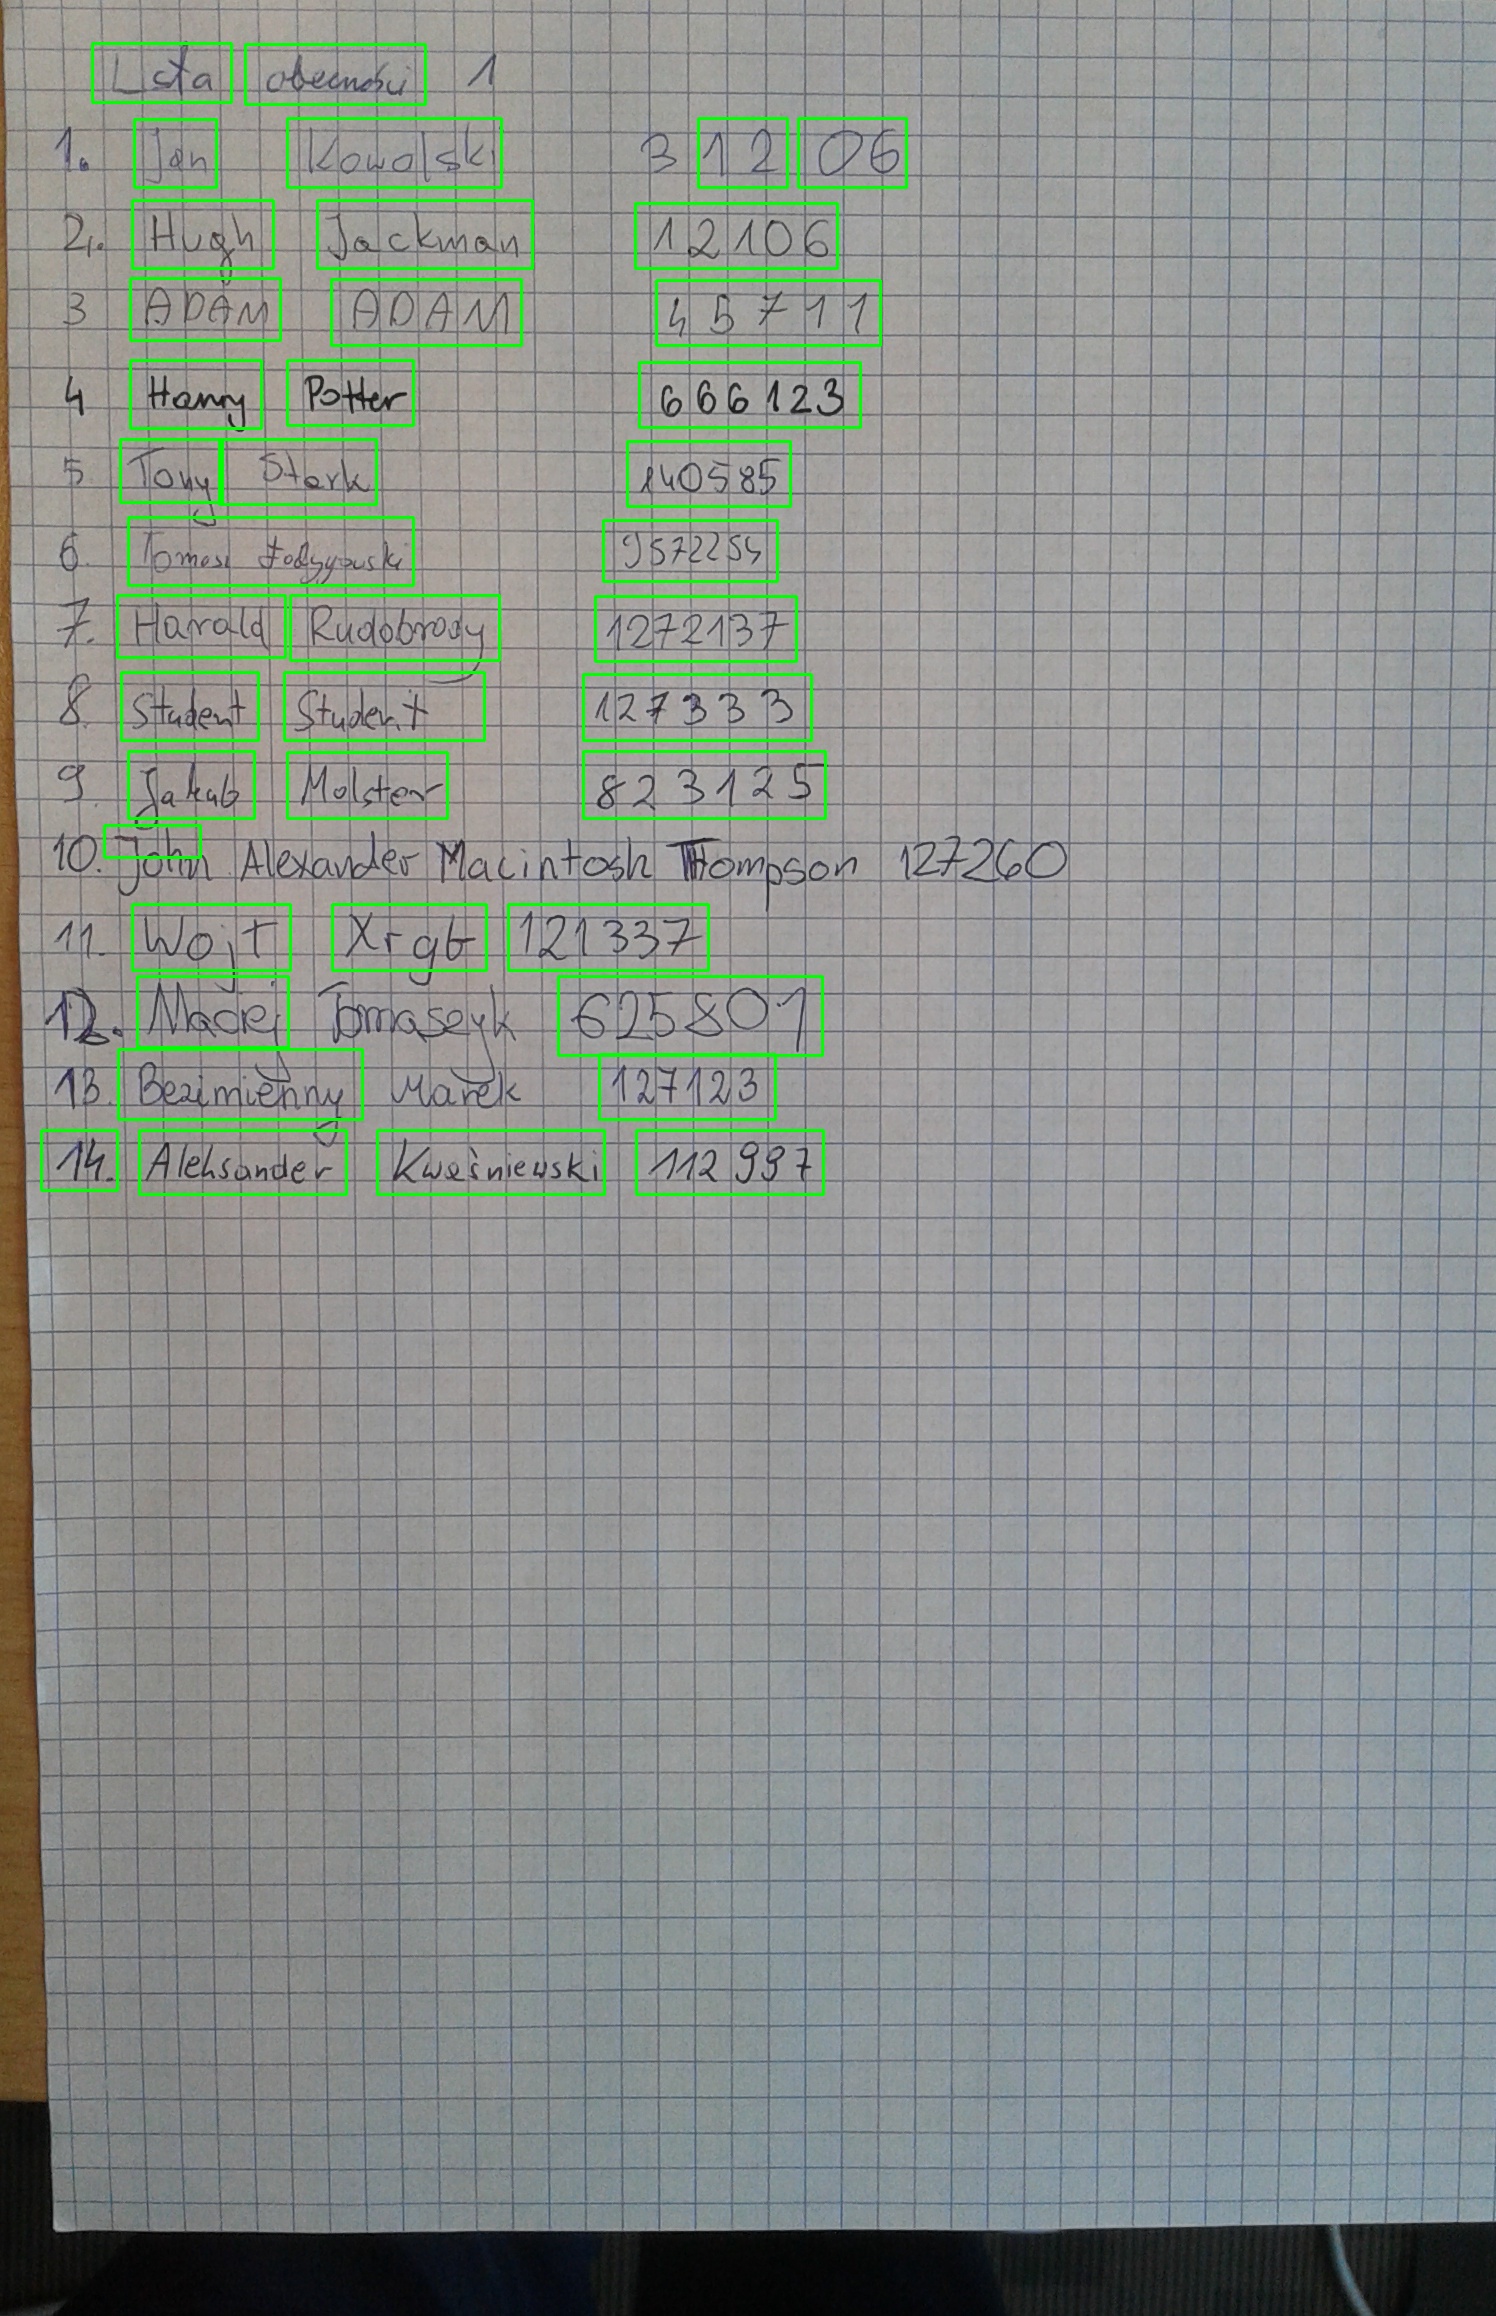 Lista obecności 1
1. Jan Kowalski 3 12 06
2. Hugh Jackman 12106
3 ADAM ADAM 45711
4 Harry Potter 666123
5 Tony Stark 140585
6. Tomasz 9572254
7. Harald Rudobrody 1272137
8. Student Student 127333
9. Jakub Molster 823125
10. John Alexander Macintosh Thompson 127260
11. Wojt Xrgb 121337
12. Maciej Tomaszyk 625801
13. Bezimienny Marek 127123
14. Aleksander Kwaśniewski 112997